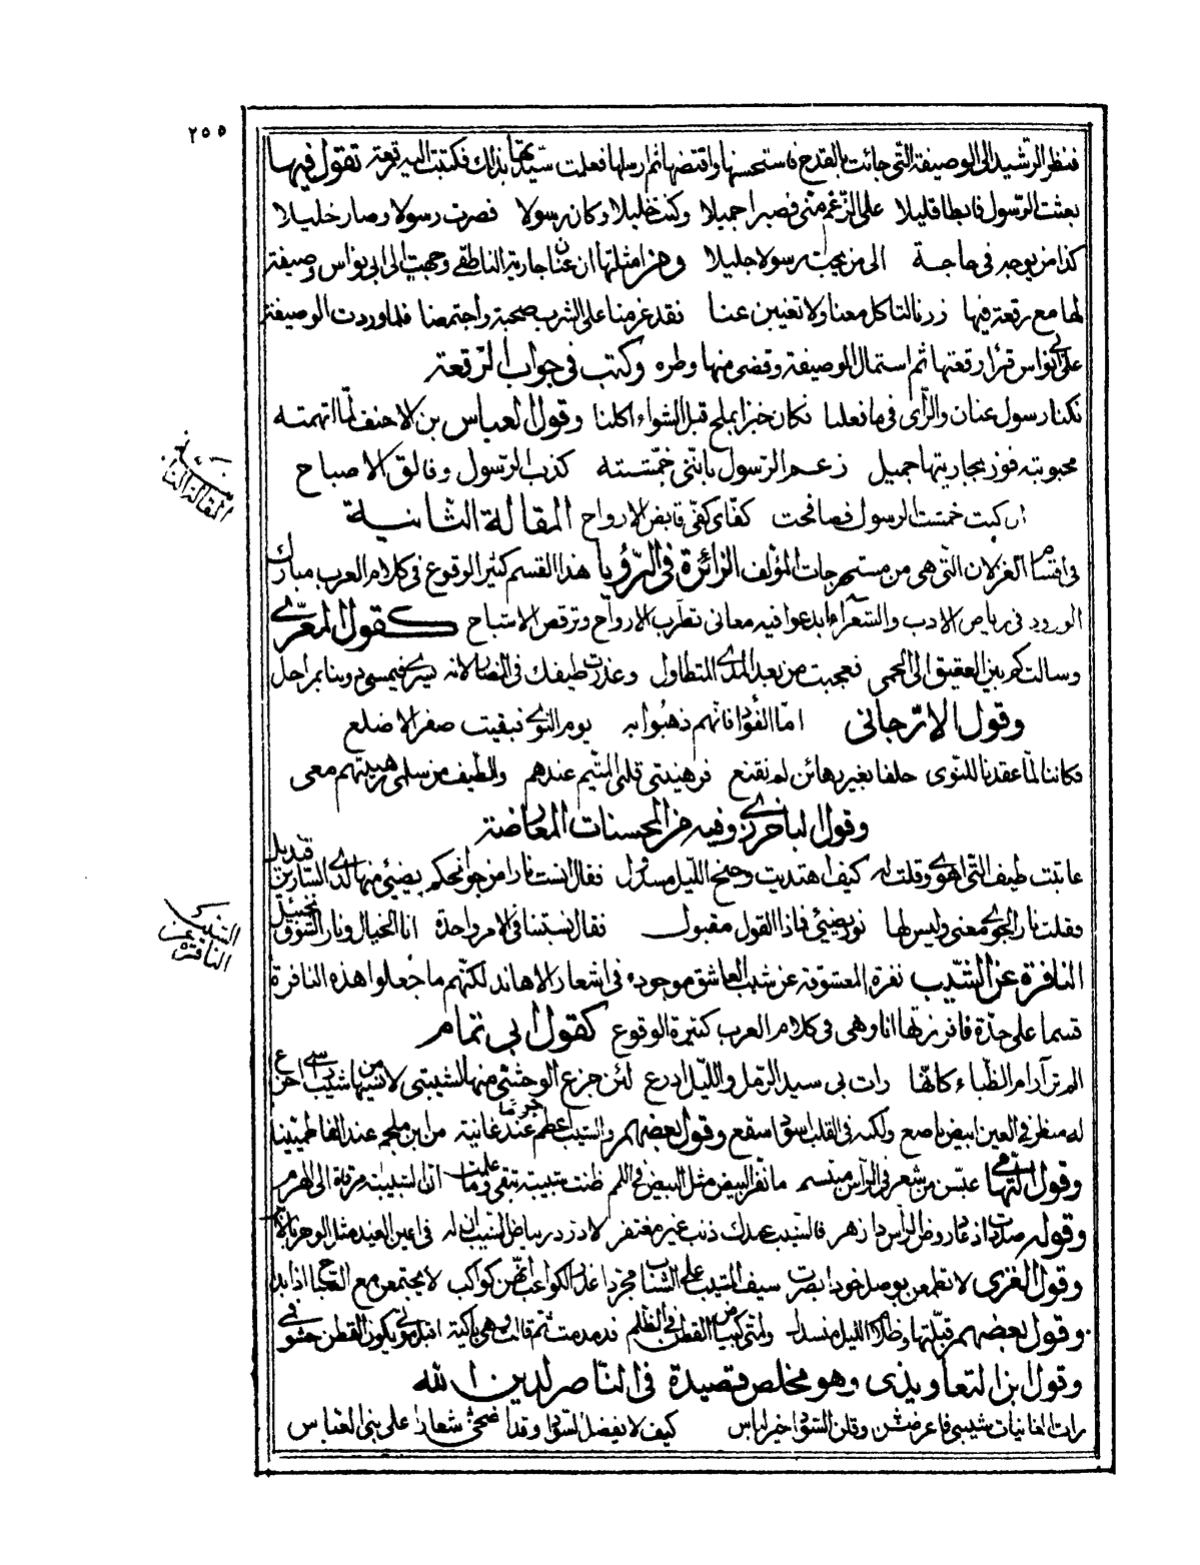 ٢٥٥
فنظر الرشيد الى الوصيفة التى جائت بالقدح فاستحسنها واقتضها ثم ارسلها فعلمت سيدتها بذلك فكتبت اليه رقعة تقول فيها
بعثت الرسول فابطا قليلا على الرغم منى فصبرا جميلا وكنت خليلا وكان رسولا فصرت رسولا وصار خليلا
كذا من يوجه فى حاجة الى من يحب رسولا جليلا وهذا مثلها ان عنان جارية الناطفى وجهت الى ابى نواس وصيفة
لها مع رقعة فيها زرنا لتاكل معنا ولا تغيبن عنا فقد عزمنا على الشرب صحبة واجتمعنا فلما وردت الوصيفة
على ابى نواس قرأ رقعتها ثم استمال الوصيفة وقضى منها وطره وكتب فى جواب الرقعة
نكنا رسول عنان والراى فى ما فعلنا فكان خبزا بملح قبل الشواء اكلنا وقول العباس بن الاحنف لما اتهمته
محبوبته فوز بجاريتها جميل زعم الرسول باننى خمشته كذب الرسول وفالق الاصباح
ان كنت خمشت الرسول فصافحت كفاى كفى قابض الارواح المقالة الثانية
فى اقسام الغزلان التى هى من مستخرجات المؤلف الزائرة فى الرؤيا هذا القسم كثير الوقوع فى كلام العرب مبارك
الورود فى رياض الادب والشعراء ابدعوا فيه معانى تطرب الارواح وترقص الاشباح كقول المعرى
وسالت كم بين العقيق الى الحمى فعجبت من بعد المدى المتطاول وعذرت طيفك فى لانه يسرى فيمسى دوننا بمراحل
وقول الارجانى اما الفؤاد فانهم ذهبوا به يوم النوى فبقيت صفر الاضلع
فكاننا لما عقدنا للنوى حلفا بغير رهائن لم نقنع فرهينتى قلبى المتيم عندهم والطيف من سلمى رهينتهم معى
وقول الباخرزى وفيه من المحسنات المعارضة
عاتبت طيف التى اهوى وقلت له كيف اهتديت وجنح الليل مسدول فقال انست نارا من جوانحكم يضيئ منها لدى السارين قنديل
فقلت نار الجوى معنى وليس لها نور يضيئ فماذا القول مقبول فقال نسبتنا فى الامر واحدة انا الخيال ونار الشوق تخييل
النافرة عن الشيب نفرة المعشوقة عن شيب العاشق موجوده فى اشعار الاهاند لكنهم ما جعلوا هذه النافرة
قسما على حدة فافرزتها انا وهى فى كلام العرب كثيرة الوقوع كقول ابى تمام
الم تر آرام الظباء كانها رات بى سيد الرمل والليل ادرع لئن جزع الوحشى منها لشيبتى لانسيها من شيب راسى اجزع
له منظر فى العين ابيض ناصع ولكنه فى القلب اسود اسفع وقول بعضهم والشيب اعظم جرما عند غانية من ابن ملجم عند الفاطميينا
وقول التهامى عبسن من شعر فى الراس مبتسم ما نفر البيض مثل البيض فى اللمم ظنت شبيبته تبقى وما علمت ان الشبيبة مرقاة الى الهرم
وقوله صدت اذ عاد روض الراس ذا زهر فالشيب عندك ذنب غير مغتفر لا در در بياض الشيب ان له فى اعين الغيد مثل الوخز بالابر
وقول الغزى لا تطمعن بوصل خود ابصرت سيف المشيب على الشباب مجردا ان الكواعب كواكب لا يجتمعن مع الصباح اذا بدا
وقول بعضهم قبلتها وظلام الليل منسدل ولمتى كبياض القطن فى الظلم فدمدمت ثم قالت وهى باكية اقبل موتى يكون القطن حشو فمى
وقول ابن التعاويذى وهو مخلص قصيدة فى الناصر لدين الله
رات الغانيات شيبى فاعرضن وقلن السواد خير لباس كيف لا يفضل السواد وقد اضحى شعارا على بنى العباس
المقالة الثانية
النافرة عن الشيب